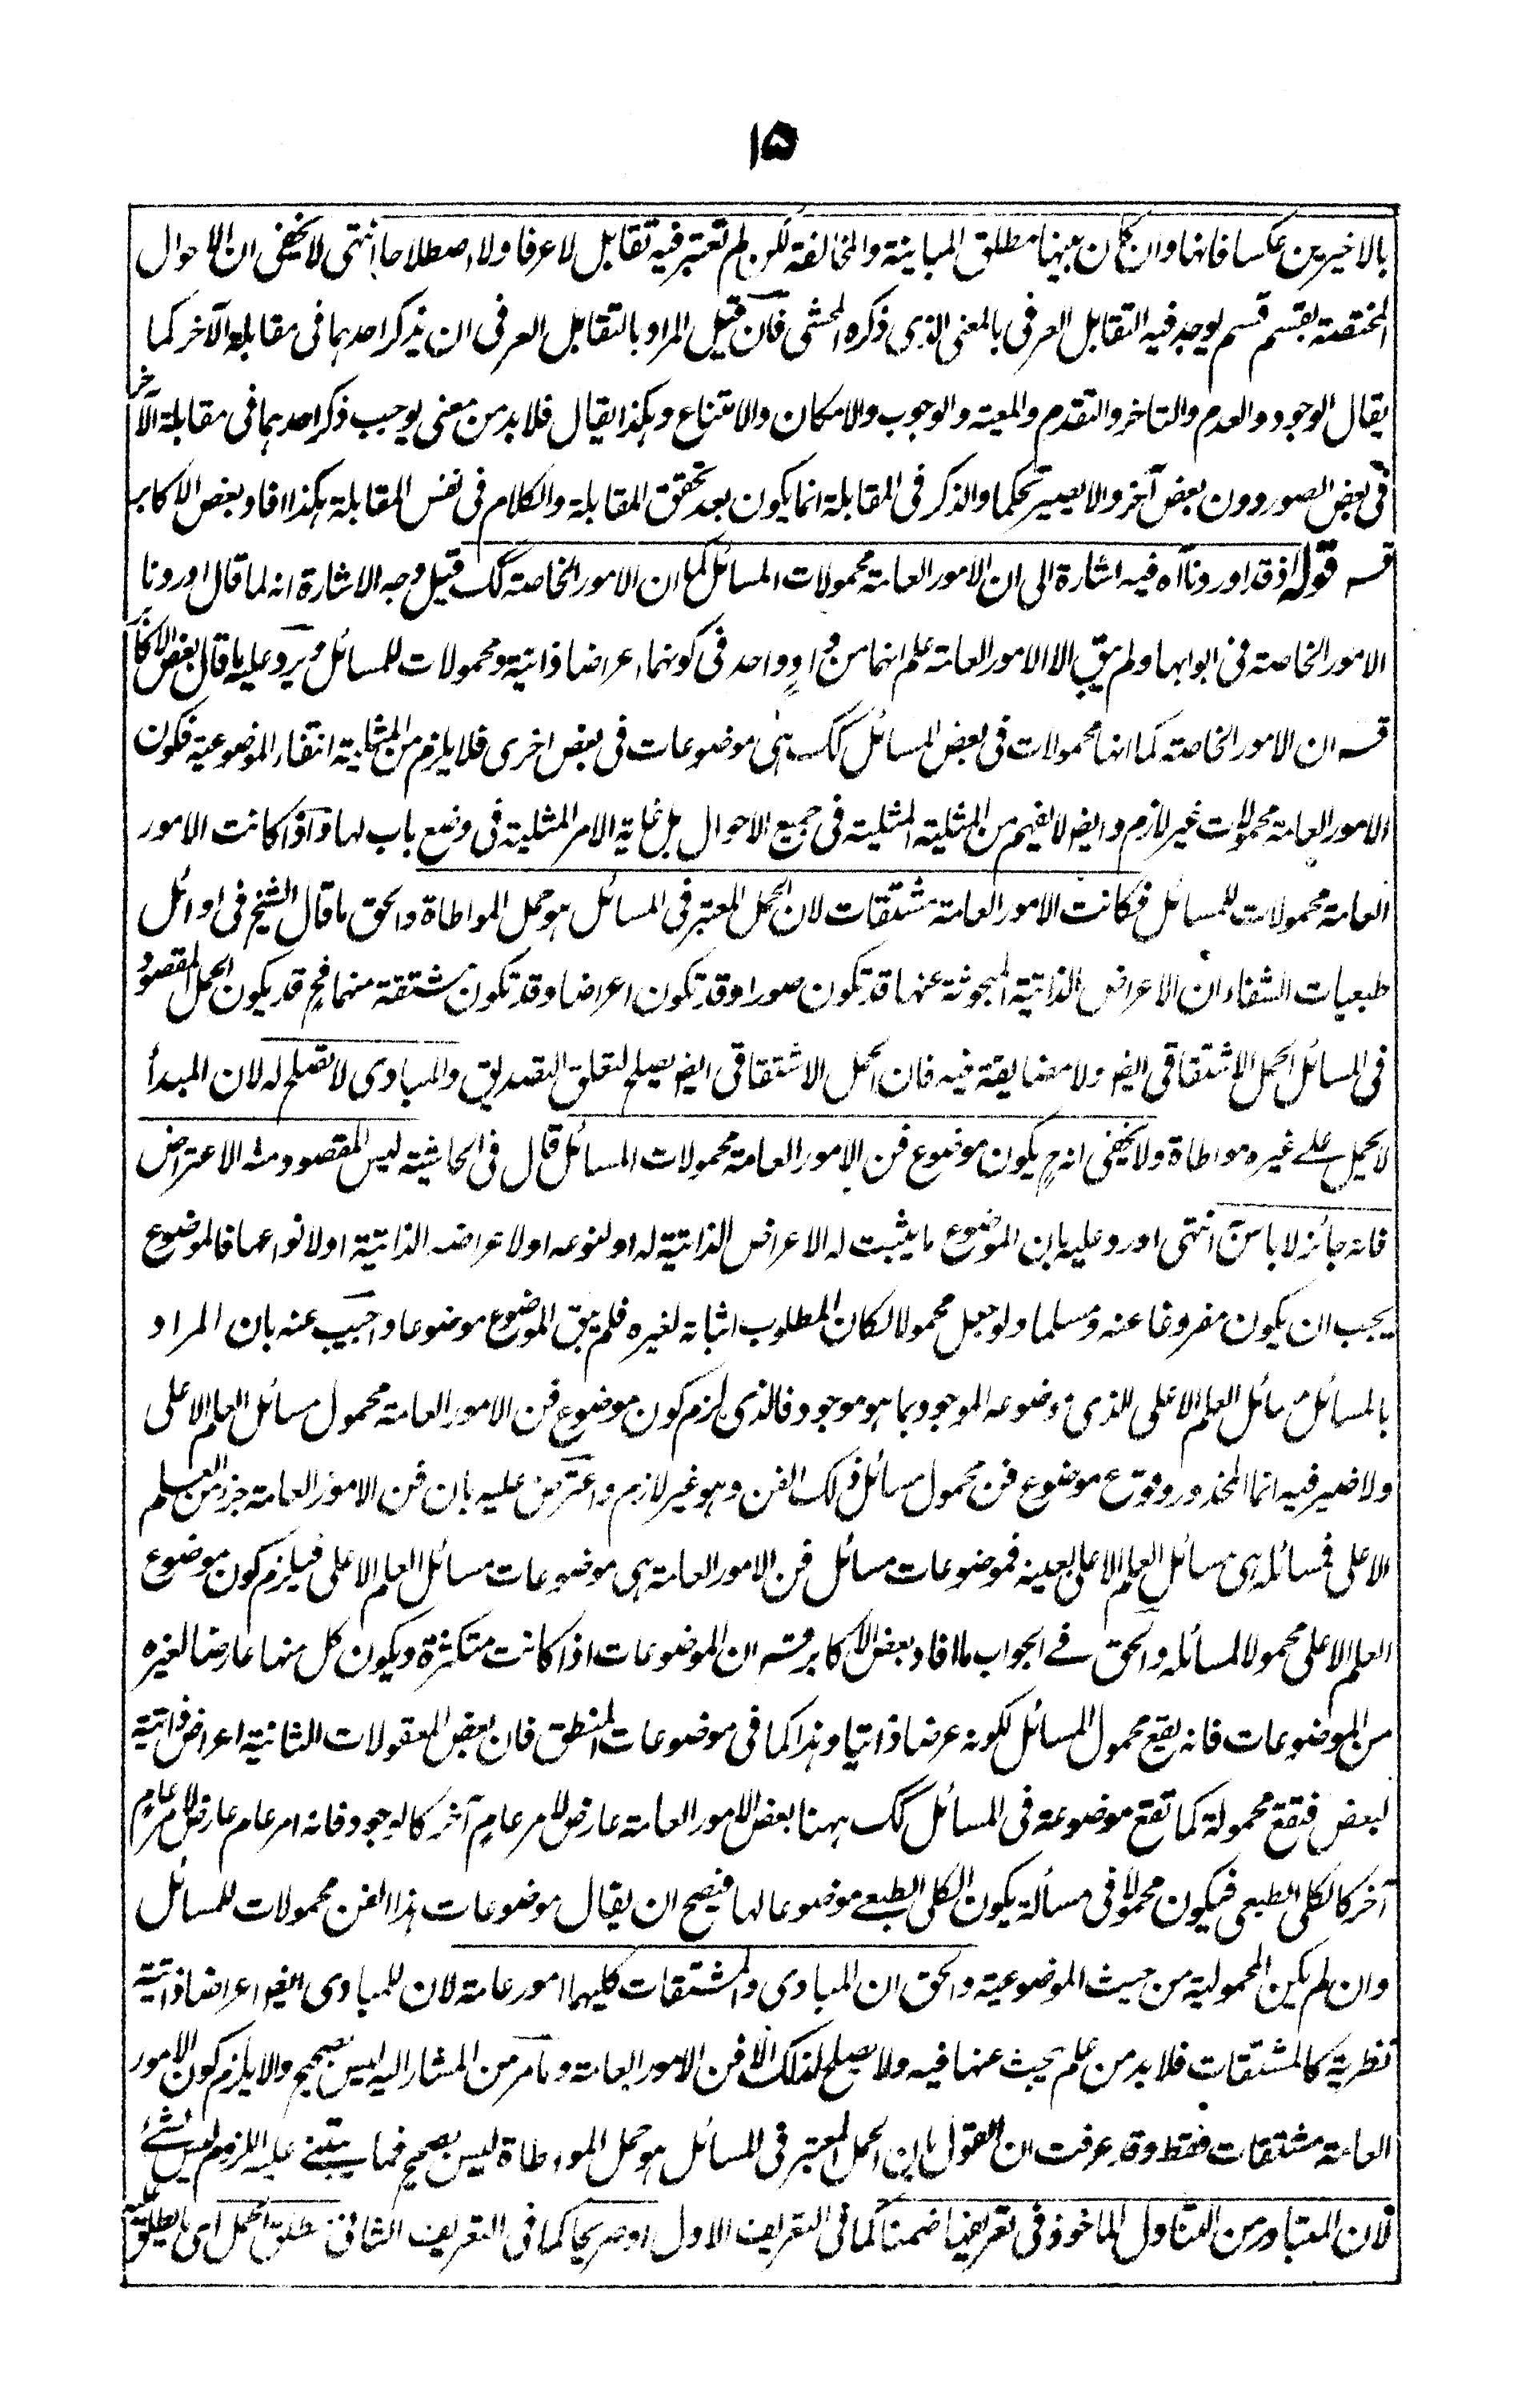 ١۵
بالاخيرين عكسا فانها وان كان بينها مطلق المباينة والمخالفة لكن لم تعتبر فيه تقابل لا عرفا ولا اصطلاحا انتهى لا يخفى ان الاحوال
المختصة بقسم قسم يوجد فيه التقابل العرفى بالمعنى الذى ذكره المحشى فان قيل المراد بالتقابل العرفى ان يذكر احدهما فى مقابلة الآخر كما
يقال الوجود والعدم والتاخر والتقدم والمعية والوجوب والامكان والامتناع وهكذا يقال فلا بد من معنى يوجب ذكر احدهما فى مقابلة الآخر
فى بعض الصور دون بعض آخر والا يصير تحكما والذكر فى المقابلة انما يكون بعد تحقق المقابلة والكلام فى نفس المقابلة هكذا افاد بعض الاكابر
قسه قوله اذ قد اوردنا آه فيه اشارة الى ان الامور العامة محمولات المسائل كما ان الامور الخاصة كك قيل وجه الاشارة انه لما قال اوردنا
الامور الخاصة فى ابوابها ولم يبق الا الامور العامة علم انهما من وادٍ واحد فى كونهما اعراضا ذاتية ومحمولات للمسائل ويرد عليه ما قال بعض الاكابر
قسه ان الامور الخاصة كما انها محمولات فى بعض المسائل كك هى موضوعات فى بعض اخرى فلا يلزم من المشابهة انتفاء الموضوعية فكون
الامور العامة محمولات غير لازم وايضا لا يفهم من المثلية المثلية فى جميع الاحوال بل غاية الامر المثلية فى وضع باب لها واذا كانت الامور
العامة محمولات للمسائل فكانت الامور العامة مشتقات لان الحمل المعتبر فى المسائل هو حمل المواطاة والحق ما قال الشيخ فى اوائل
طبعيات الشفاء ان الاعراض الذاتية المبحوثة عنها قد تكون صورا وقد تكون اعراضا وقد تكون مشتقة منهما فح قد يكون الحمل المقصود
فى المسائل الحمل الاشتقاقى ايضا ولا مضايقة فيه فان الحمل الاشتقاقى ايضا يصلح لتعلق التصديق والمبادى لا تصلح له لان المبدأ
لا يحمل على غيره مواطاة ولا يخفى انه ح يكون موضوع فن الامور العامة محمولات المسائل قال فى الحاشية ليس المقصود منه الاعتراض
فانه جائز لا باس به انتهى اورد عليه بان الموضوع ما يثبت له الاعراض الذاتية له او لنوعه او لاعراضه الذاتية او لانواعها فالموضوع
يجب ان يكون مفروغا عنه ومسلما ولو جعل محمولا لكان المطلوب اثباته لغيره فلم يبق الموضوع موضوعا واجيب عنه بان المراد
بالمسائل مسائل العلم الاعلى الذى موضوعه الموجود بما هو موجود فالذى لزم كون موضوع فن الامور العامة محمول مسائل العلم الاعلى
ولا ضير فيه انما المحذور وقوع موضوع فن محمول مسائل ذلك الفن وهو غير لازم واعترض عليه بان فن الامور العامة جزء من العلم
الاعلى فمسائله هى مسائل العلم الاعلى بعينه فموضوعات مسائل فن الامور العامة هى موضوعات مسائل العلم الاعلى فيلزم كون موضوع
العلم الاعلى محمولا لمسائله والحق فے الجواب ما افاد بعض الاكابر قسه ان الموضوعات اذا كانت متكثرة ويكون كل منها عارضا لغيره
من الموضوعات فانه يقع محمول المسائل لكونه عرضا ذاتيا وهذا كما فى موضوعات المنطق فان بعض المعقولات الثانية اعراض ذاتية
لبعض فتقع محمولة كما تقع موضوعة فى المسائل كك ههنا بعض الامور العامة عارض لامر عام آخر كالوجود فانه امر عام عارض لامر عام
آخر كالكلى الطبعى فيكون محمولا فى مسألة يكون الكلى الطبعے موضوعا لها فيصح ان يقال موضوعات هذا الفن محمولات للمسائل
وان لم يكن المحمولية من حيث الموضوعية والحق ان المبادى والمشتقات كليهما امور عامة لان للمبادى ايضا اعراضا ذاتية
نظرية كالمشتقات فلا بد من علم يبحث عنها فيه ولا يصلح لذلك الا فن الامور العامة وما مر من المشار اليه ليس بصحيح والا يلزم كون الامور
العامة مشتقات فقط وقد عرفت ان القول بان الحمل المعتبر فى المسائل هو حمل المواطاة ليس بصحيح فما يبتنے عليه اللزوم ليس بشئ
فان المتبادر من التناول الماخوذ فى تعريفها ضمنا كما فى التعريف الاول او صريحا كما فى التعريف الثانى مطلق الحمل اى ما يطلق عليه